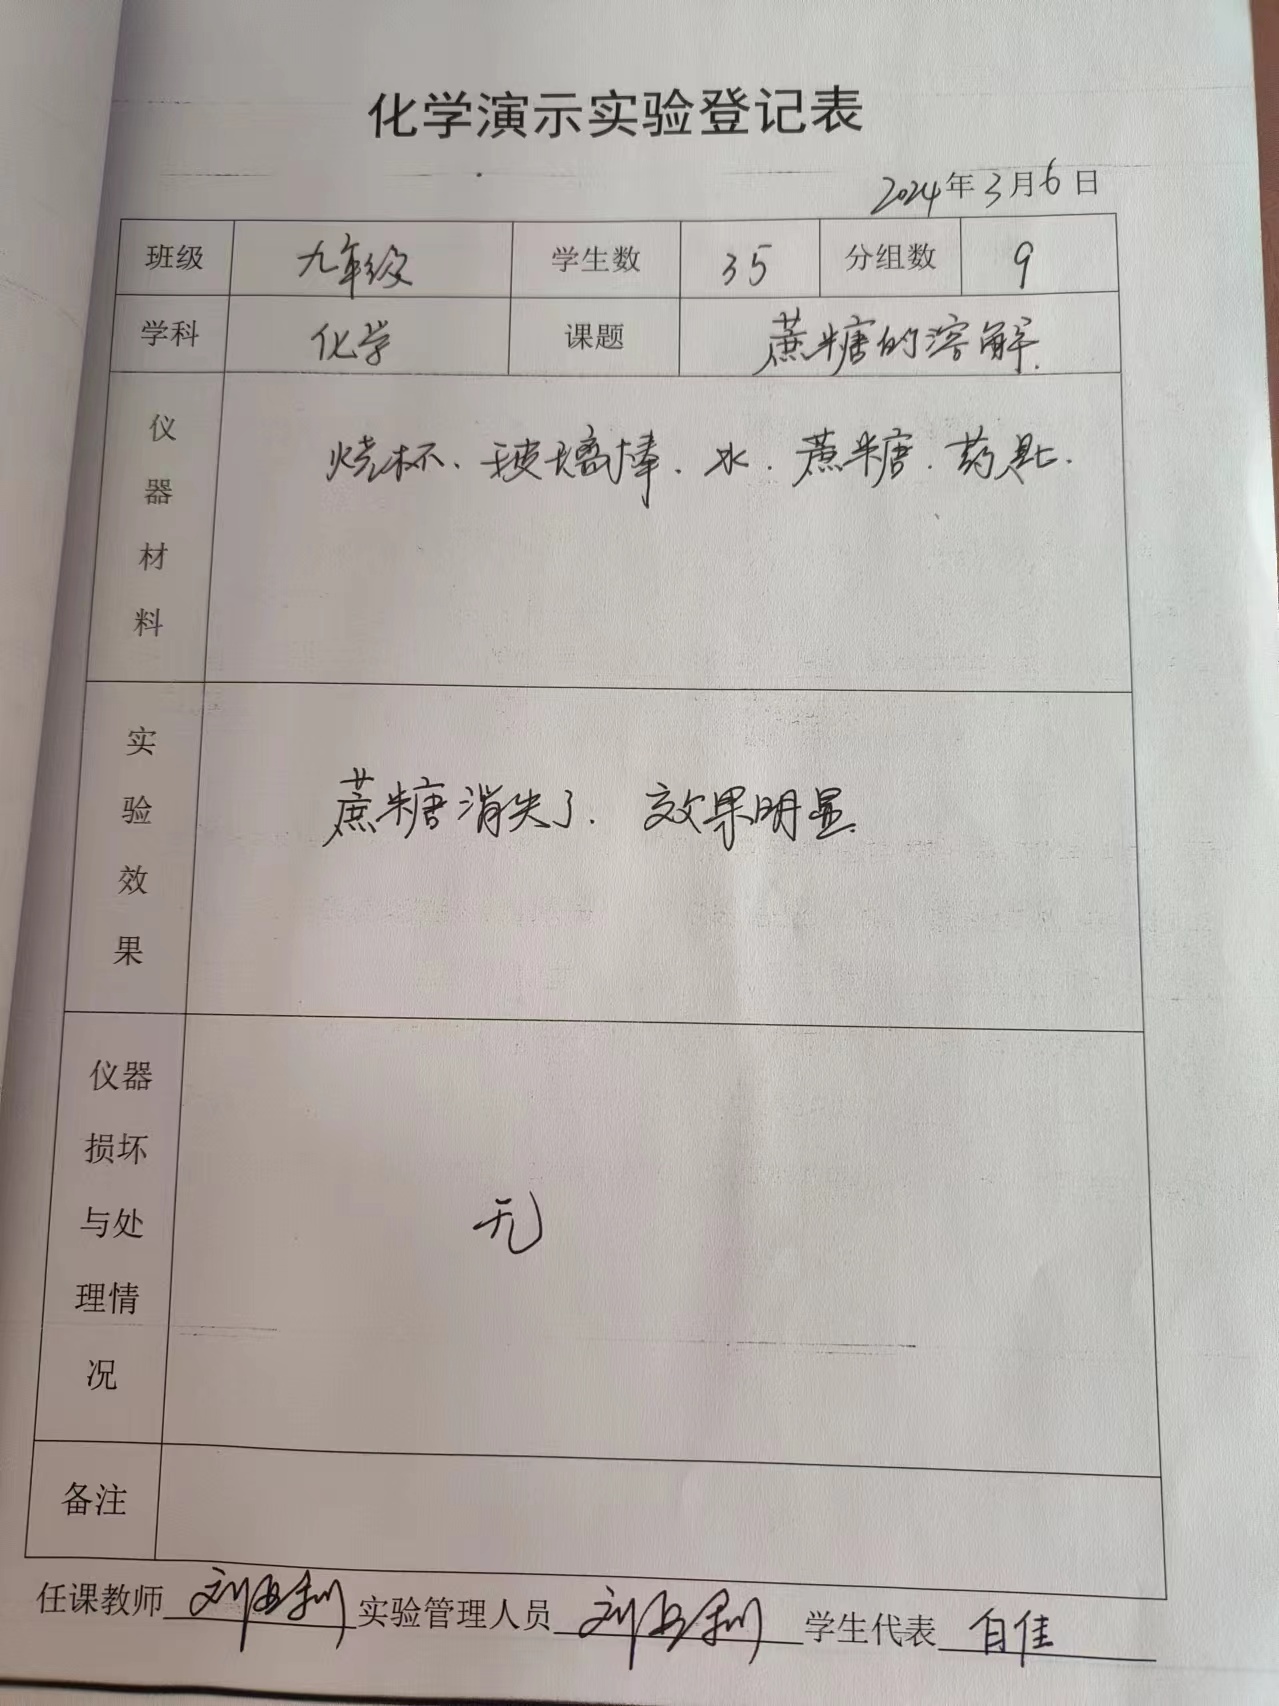 化学演示实验登记表
2024年3月6日
班级 九年级 学生数 35 分组数 9
学科 化学 课题 蔗糖的溶解.
仪器材料 烧杯、玻璃棒、水、蔗糖、药匙.
实验效果 蔗糖消失了. 效果明显.
仪器损坏与处理情况 无
备注
任课教师 刘 实验管理人员 刘 学生代表 白佳